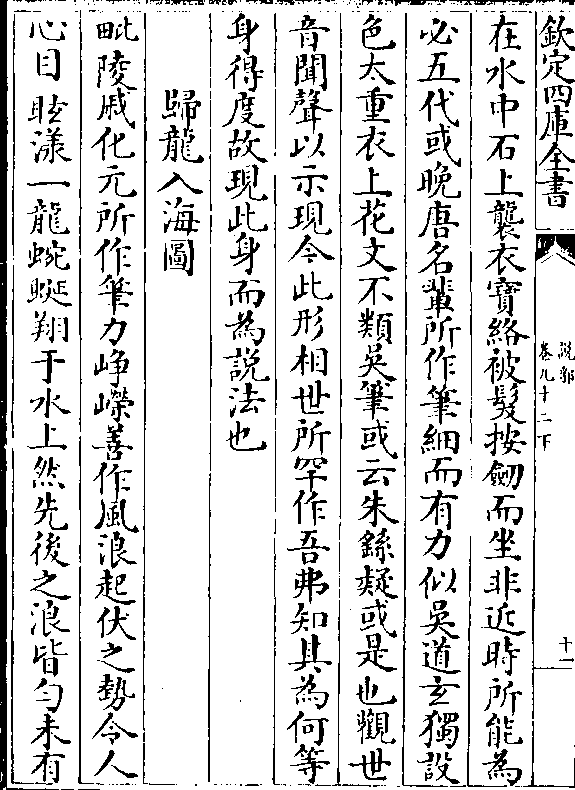 欽定四庫全書
說郛
卷九十二下
十一
在水中石上襲衣寶絡被髮按劒而坐非近時所能為
必五代或晚唐名輩所作筆細而有力似吳道玄獨設
色太重衣上花文不類吳筆或云朱繇疑或是也觀世
音聞聲以示現今此形相世所罕作吾弗知其為何等
身得度故現此身而為說法也
歸龍入海圖
毗陵戚化元所作筆力崢嶸善作風浪起伏之勢令人
心目眩漾一龍蜿蜒翔于水上然先後之浪皆勻未有